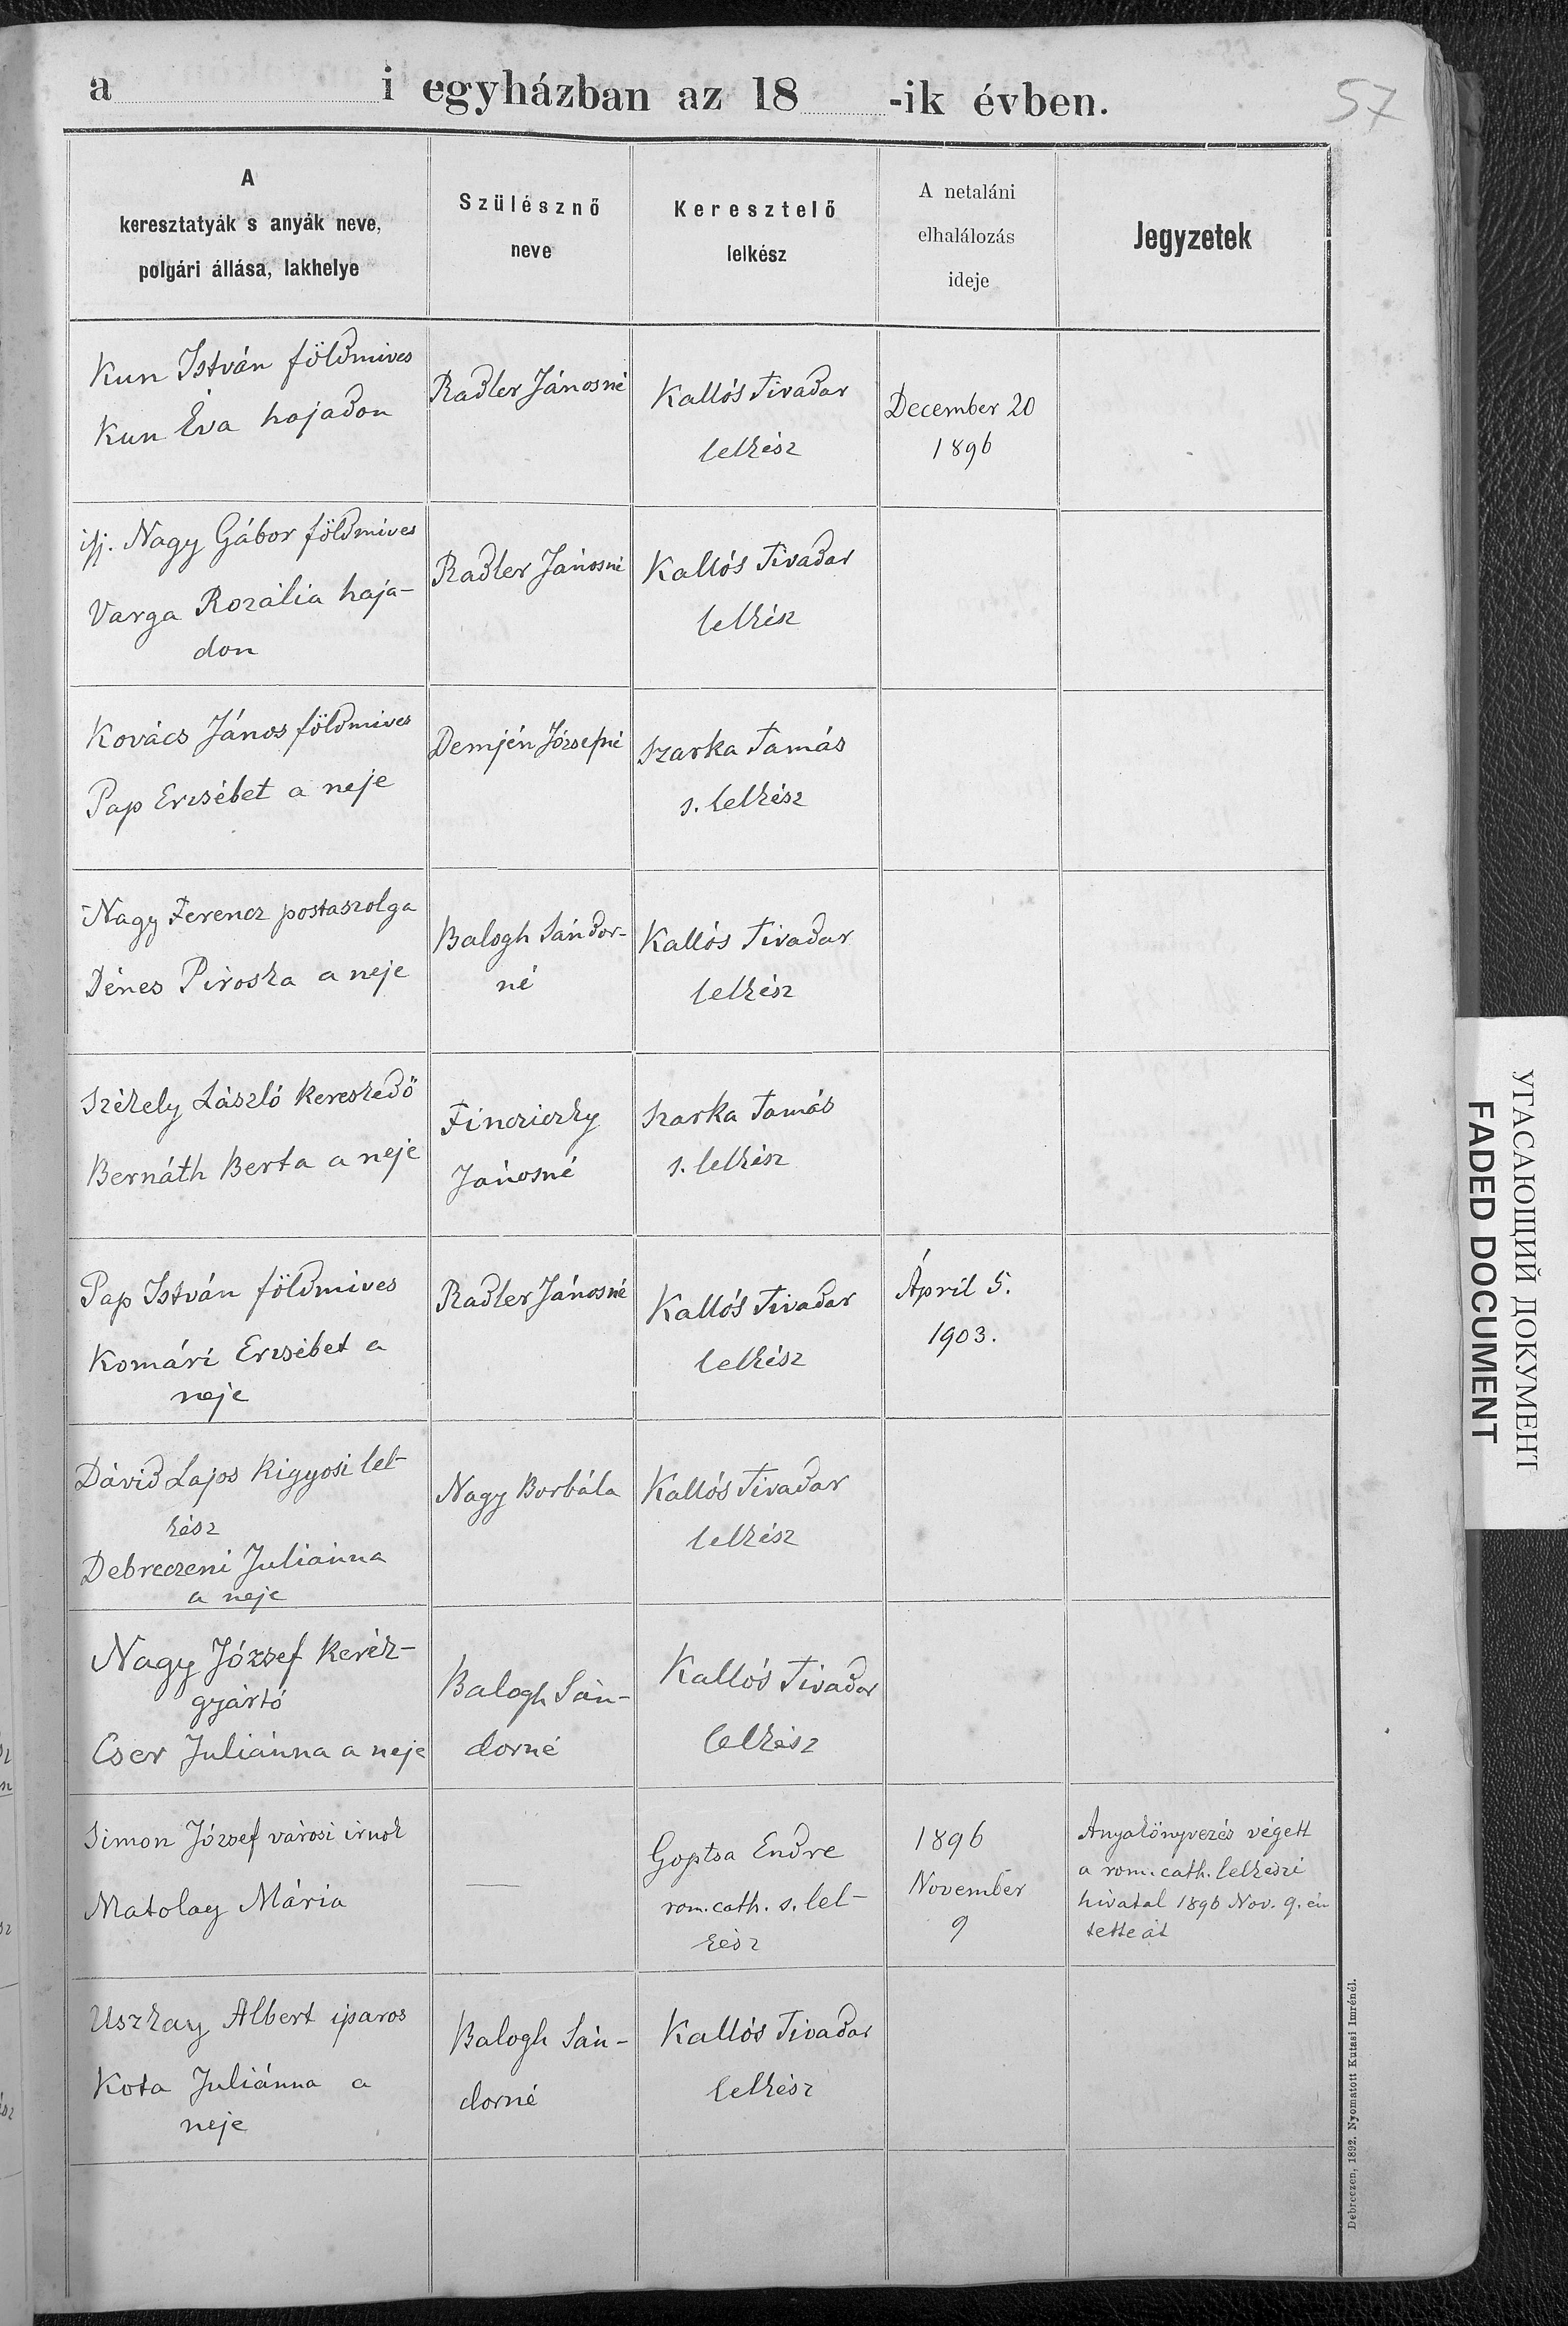 a i egyházban az 18 -ik évben.
57
A
keresztatyák s anyák neve,
polgári állása, lakhelye
Szülésznő
neve
Keresztelő
lelkész
A netaláni
elhalálozás
ideje
Jegyzetek
Kun István földmives
Kun Éva hajadon
Radler Jánosné
Kallós Tivadar
lelkész
December 20
1896
ifj. Nagy Gábor földmives
Varga Rozália haja-
don
Radler Jánosné
Kallós Tivadar
lelkész
Kovács János földmives
Pap Erzsébet a neje
Demjén Józsefné
Szarka Tamás
s. lelkész
Nagy Ferencz postaszolga
Dénes Piroska a neje
Balogh Sándor-
né
Kallós Tivadar
lelkész
Székely László kereskedő
Bernáth Berta a neje
Fincziczky
Jánosné
Szarka Tamás
s. lelkész
Pap István földmives
Komári Erzsébet a
neje
Radler Jánosné
Kallós Tivadar
lelkész
Ápril 5.
1903.
Dávid Lajos kigyosi lel-
kész
Debreczeni Juliánna
a neje
Nagy Borbála
Kallós Tivadar
lelkész
Nagy József kerék-
gyártó
Cser Juliánna a neje
Balogh Sán-
dorné
Kallós Tivadar
lelkész
Simon József városi irnok
Matolay Mária
—
Goptsa Endre
rom. cath. s. lel-
kész
1896
November
9
Anyakönyvezés végett
a rom. cath. lelkészi
hivatal 1896 Nov. 9. én
tette át
Uszkay Albert iparos
Kota Juliánna a
neje
Balogh Sán-
dorné
Kallós Tivadar
lelkész
Debreczen, 1892. Nyomatott Kutasi Imrénél.
УГАСАЮЩИЙ ДОКУМЕНТ
FADED DOCUMENT